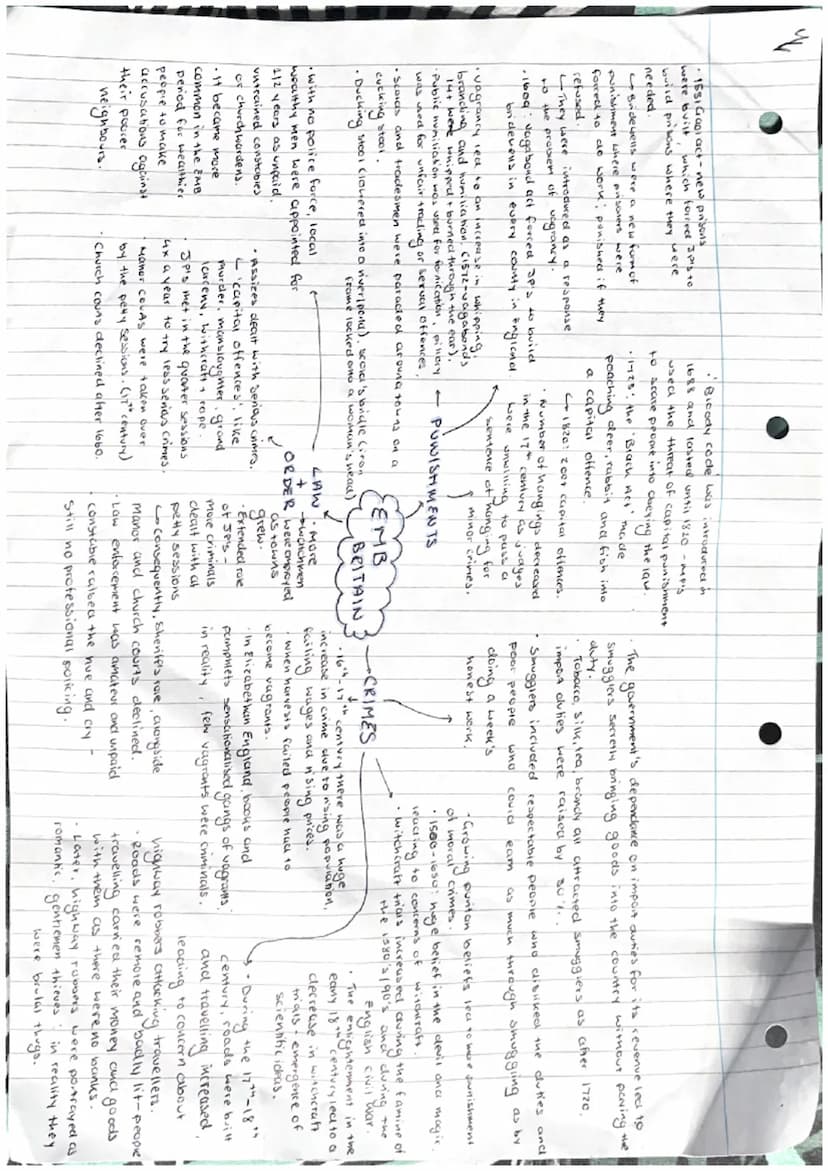 · 1531 Gaol act - new prisons
were built, which forced JPs to
build prisons where they were
needed.
↳ Bridewells were a new form of
punishment where prisoners were
forced to do work; punished if they
refused.
↳ They were introduced as a response
to the problem of vagrancy.
· 1609: Vagabond act forced JPs to build
bridewells in every county in England
· Vagrancy led to an increase in whipping,
branding and humiliation. (1572 - vagabonds
14+ were whipped + burned through the ear).
· Public humiliation was used for fornication, pillory
was used for unfair trading or sexual offences.
· Scolds and tradesmen were paraded around towns on a
cucking stool.
· Ducking stool (lowered into a river/pond), scold's bridle (iron
frame locked onto a woman's head)
· 'Bloody code' was introduced in
1688 and lasted until 1820 - MPs
used the threat of capital punishment
to scare people into obeying the law.
· 1723: the 'Black Act' made
poaching deer, rabbit and fish into
a capital offence.
↳ 1820: 200+ capital offences.
· Number of hangings decreased
in the 17th century as judges
were unwilling to pass a
sentence of hanging for
minor crimes.
PUNISHMENTS
EMB
BRITAIN
LAW
+
ORDER
· With no police force, local
wealthy men were appointed for
1/2 years as unpaid,
untrained constables
or churchwardens.
· It became more
common in the EMB
period for wealthier
people to make
accusations against
their poorer
neighbours.
· Assizes dealt with serious crimes.
↳ 'capital offences', like
murder, manslaughter, grand
larceny, witchcraft + rape.
· JPs met in the quarter sessions
4x a year to try less serious crimes.
· Manor courts were taken over
by the petty sessions. (17th century)
· Church courts declined after 1660.
· More
watchmen
were employed
as towns
grew.
· Extended role
of JPs -
more criminals
dealt with at
petty sessions
↳ Consequently, sheriffs role, alongside
Manor and church courts declined.
· Law enforcement was amateur and unpaid
· constable raised the hue and cry -
still no professional policing.
CRIMES
· The government's dependence on import duties for its revenue led to
smugglers secretly bringing goods into the country without paying the
duty.
· Tobacco, silk, tea, brandy all attracted smugglers as after 1720,
import duties were raised by 30%.
· Smugglers included respectable people who disliked the duties and
poor people who could earn as much through smuggling as by
doing a week's
honest work.
· Growing puritan beliefs led to more punishment
of moral crimes.
· 1500-1650: huge belief in the devil and magic,
leading to concerns of witchcraft.
· Witchcraft trials increased during the famine of
the 1580's/90's and during the
English civil war.
· The enlightenment in the
early 18th century led to a
decrease in witchcraft
trials, emergence of
scientific ideas.
· 16th-17th century there was a huge
increase in crime due to rising population,
falling wages and rising prices.
· When harvests failed people had to
become vagrants.
· In Elizabethan England, books and
pamphlets sensationalised gangs of vagrants.
in reality, few vagrants were criminals.
· During the 17th-18th
century, roads were built
and travelling increased,
leading to concern about
highway robbers attacking travellers.
· Roads were remote and badly lit - people
travelling carried their money and goods
with them as there were no banks.
· Later, highway robbers were portrayed as
romantic, gentlemen thieves; in reality they
were brutal thugs.